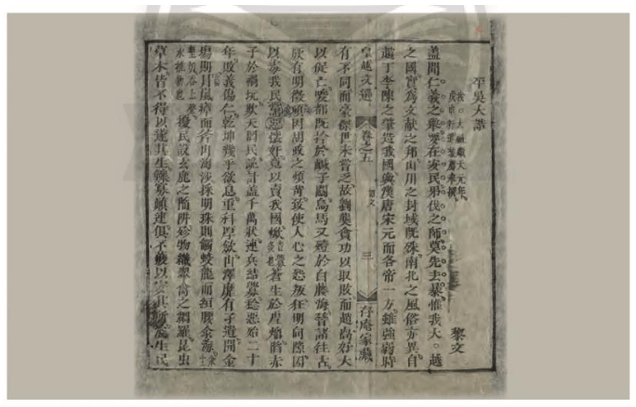 平吳大誥
黎文
蓋聞仁義之舉要在安民弔伐之師莫先去暴惟我大越
之國實為文献之邦山川之封域既殊南北之風俗亦異自
趙丁李陳之肇造我國與漢唐宋元而各帝一方雖強弱時
皇越文選 卷之五 誥文 三 存庵家藏
有不同而豪傑世未嘗乏故劉龑貪功以取敗而趙卨好大
以促亡唆都既擒於鹹子關烏馬又殪於白藤海嵇諸往古
厥有明徵頃因胡政之煩苛致使人心之怨叛狂明伺隙因
以毒我民惡黨懷奸竟以賣我國焮蒼生於虐焰陷赤
子於禍坑欺天罔民詭計盖千萬狀連兵結釁稔惡殆二十
年敗義傷仁乾坤幾乎欲息重科厚歛山澤靡有孑遺開金
塲則冒嵐瘴而斧山淘沙採明珠則觸蛟龍而絙腰汆海
擾民設玄鹿之陷阱殄物織翠禽之網羅昆虫
草木皆不得以遂其生鰥寡顛連俱不獲以安其所浚生民